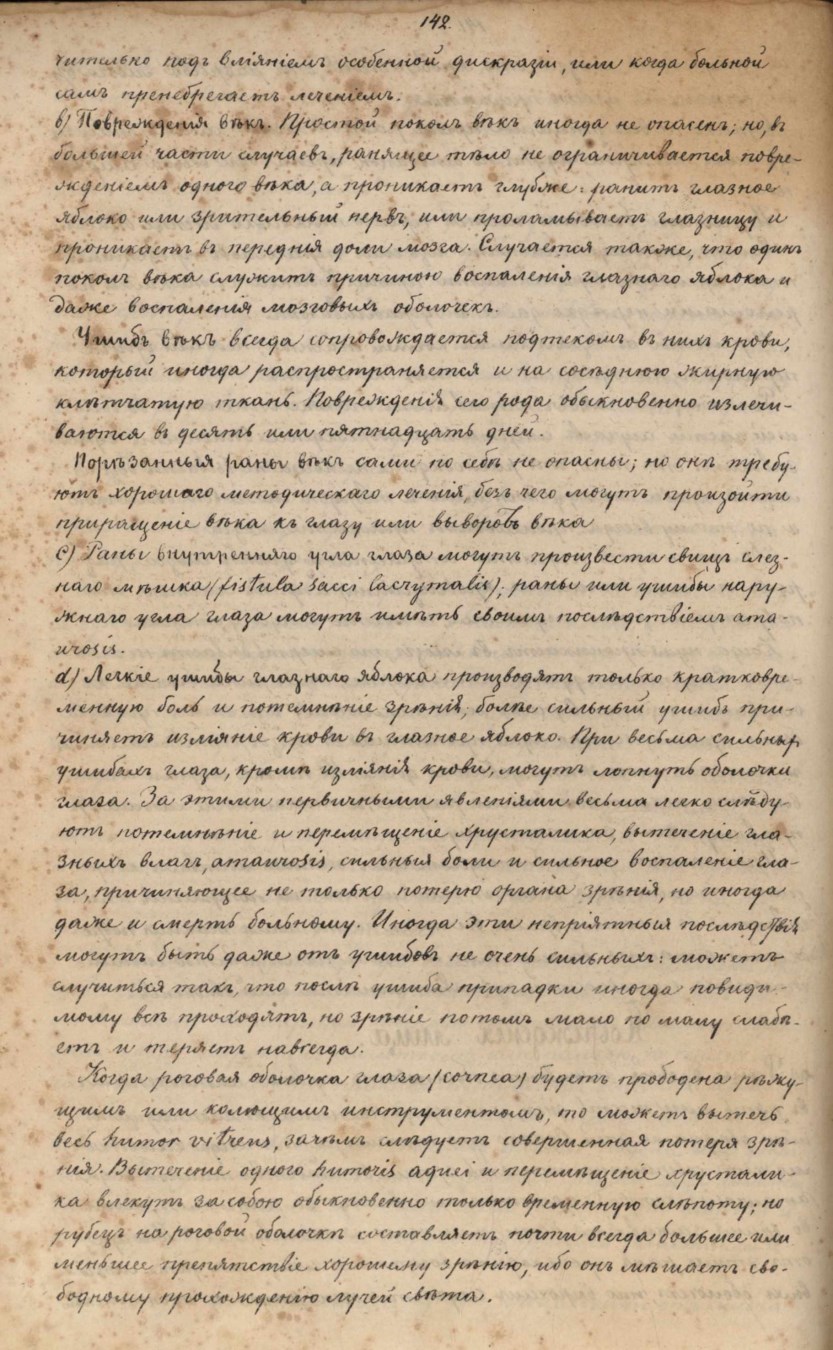 142.
чительно подъ вліяніемъ особенной дискразіи, или когда больной
самъ пренебрегаетъ леченіемъ.
b) Поврежденія вѣкъ. Простой поколъ вѣкъ иногда не опасенъ; но, въ
большей части случаевъ, ранящее тѣло не ограничивается повре-
жденіемъ одного вѣка, а проникаетъ глубже: ранитъ глазное
яблоко или зрительный нервъ, или проламываетъ глазницу и
проникаетъ въ переднія доли мозга. Случается также, что одинъ
поколъ вѣка служитъ причиною воспаленія глазнаго яблока и
даже воспаленія мозговыхъ оболочекъ.
Ушибъ вѣкъ всегда сопровождается подтекомъ въ нихъ крови,
который иногда распространяется и на сосѣднюю жирную
клѣтчатую ткань. Поврежденія сего рода обыкновенно излечи-
ваются въ десять или пятнадцать дней.
Порѣзанныя раны вѣкъ сами по себѣ не опасны; но онѣ требу-
ютъ хорошаго методическаго леченія, безъ чего могутъ произойти
приращеніе вѣка къ глазу или выворотъ вѣка
c) Раны внутренняго угла глаза могутъ произвести свищъ слез-
наго мѣшка (fistula sacci lacrymalis); раны или ушибы нару-
жнаго угла глаза могутъ имѣть своимъ послѣдствіемъ ama-
urosis.
d) Легкіе ушибы глазнаго яблока производятъ только кратковре-
менную боль и потемнѣніе зрѣнія; болѣе сильный ушибъ при-
чиняетъ изліяніе крови въ глазное яблоко. При весьма сильныхъ
ушибахъ глаза, кромѣ изліянія крови, могутъ лопнуть оболочки
глаза. За этими первичными явленіями весьма легко слѣду-
ютъ потемнѣніе и перемѣщеніе хрусталика, вытеченіе гла-
зныхъ влагъ, amaurosis, сильныя боли и сильное воспаленіе гла-
за, причиняющее не только потерю органа зрѣнія, но иногда
даже и смерть больному. Иногда эти непріятныя послѣдствія
могутъ быть даже отъ ушибовъ не очень сильныхъ: можетъ
случиться такъ, что послѣ ушиба припадки иногда повиди-
мому всѣ проходятъ, но зрѣніе потомъ мало по малу слабѣ-
етъ и теряетъ навсегда.
Когда роговая оболочка глаза (cornea) будетъ прободена рѣжу-
щимъ или колющимъ инструментомъ, то можетъ вытечь
весь humor vitreus, зачѣмъ слѣдуетъ совершенная потеря зрѣ-
нія. Вытеченіе одного humoris aquei и перемѣщеніе хрустали-
ка влекутъ за собою обыкновенно только временную слѣпоту; но
рубецъ на роговой оболочкѣ составляетъ почти всегда большее или
меньшее препятствіе хорошему зрѣнію, ибо онъ мѣшаетъ сво-
бодному прохожденію лучей свѣта.